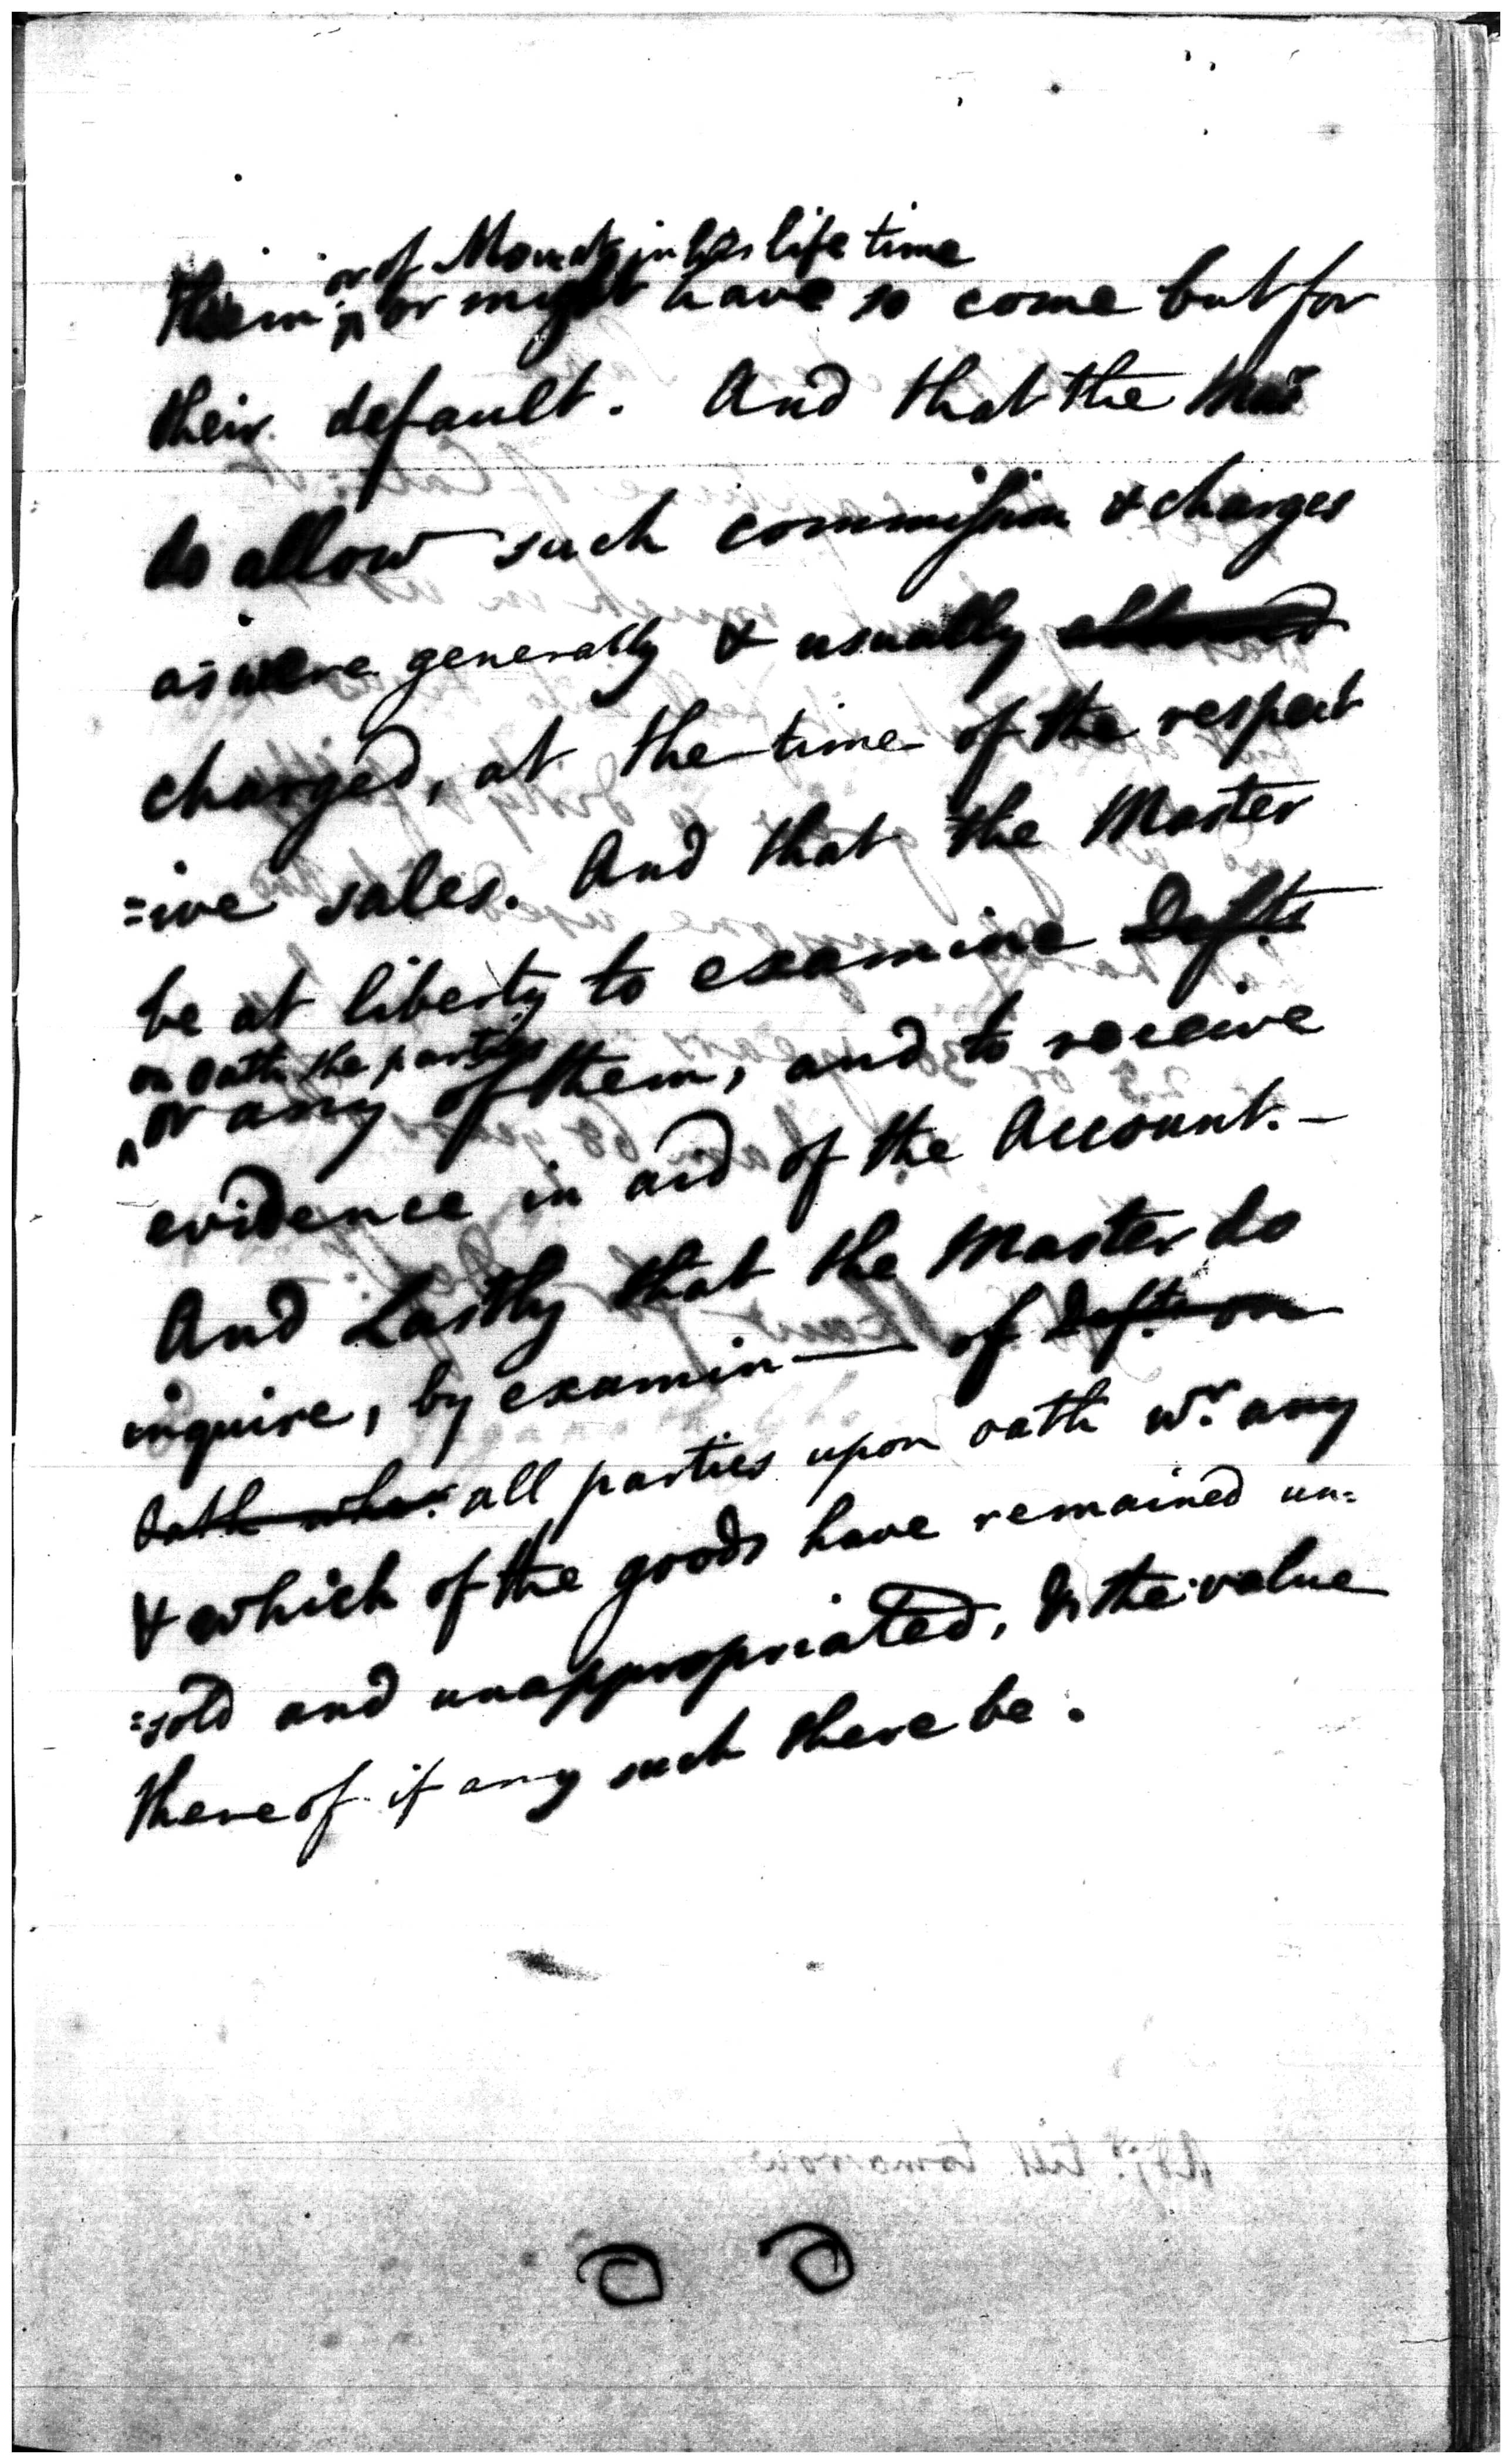 or of Mowat in his life time
them or might have so come but for
their default. And that the Mas.r
do allow such commission & charges
as were generally & usually allowed
charged, at the time of the respect
=ive sales. And that the Master
be at liberty to examine Defts
on oath the parties
or any of them, and to receive
evidence in aid of the Account. -
And Lastly that the Master do
inquire, by examin— of Defts on
Oath whe.r all parties upon oath w.r any
& which of the goods have remained un=
=sold and unappropriated, & the value
thereof if any such there be.